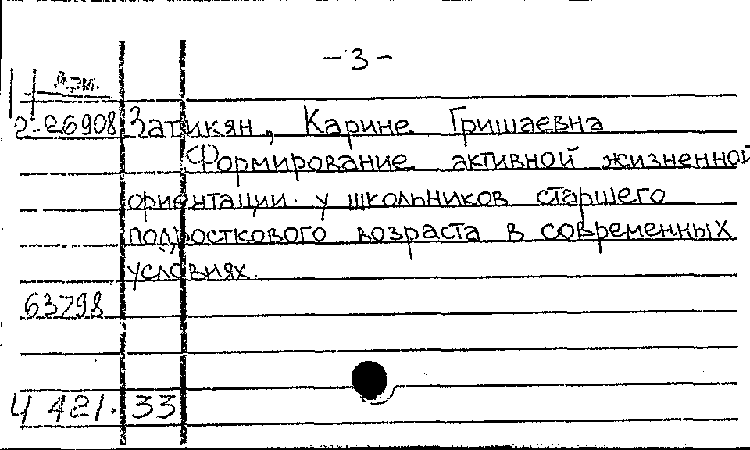 - 3 -
Затикян, Карине Гришаевна
Формирование активной жизненной
ориентации у школьников старшего
подросткового возраста в современных
условиях.
63798
Ч 421. 33